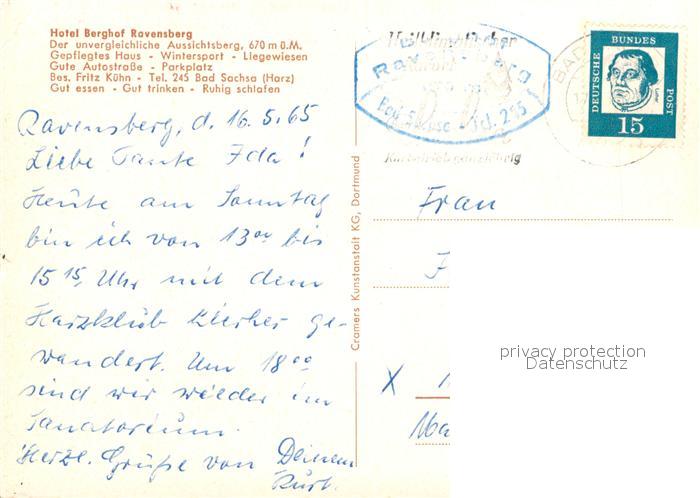 Hotel Berghof Ravensberg
Der unvergleichliche Aussichtsberg, 670 m ü.M.
Gepflegtes Haus - Wintersport - Liegewiesen
Gute Autostraße - Parkplatz
Bes. Fritz Kühn - Tel. 245 Bad Sachsa (Harz)
Gut essen - Gut trinken - Ruhig schlafen
Ravensberg, d. 16.5.65
Liebe Tante Ida!
Heute am Sonntag
bin ich von 13⁰⁰ bis
15¹⁵ Uhr mit dem
Harzklub hierher ge-
wandert. Um 18⁰⁰
sind wir wieder im
Sanatorium.
Herzl. Grüße von Deinem
Kurt.
Cramers Kunstanstalt KG, Dortmund
Ravensberg
Bad Sachsa - Td. 245
BAD
DEUTSCHE BUNDESPOST
Luther
15
Frau
privacy protection
Datenschutz
X